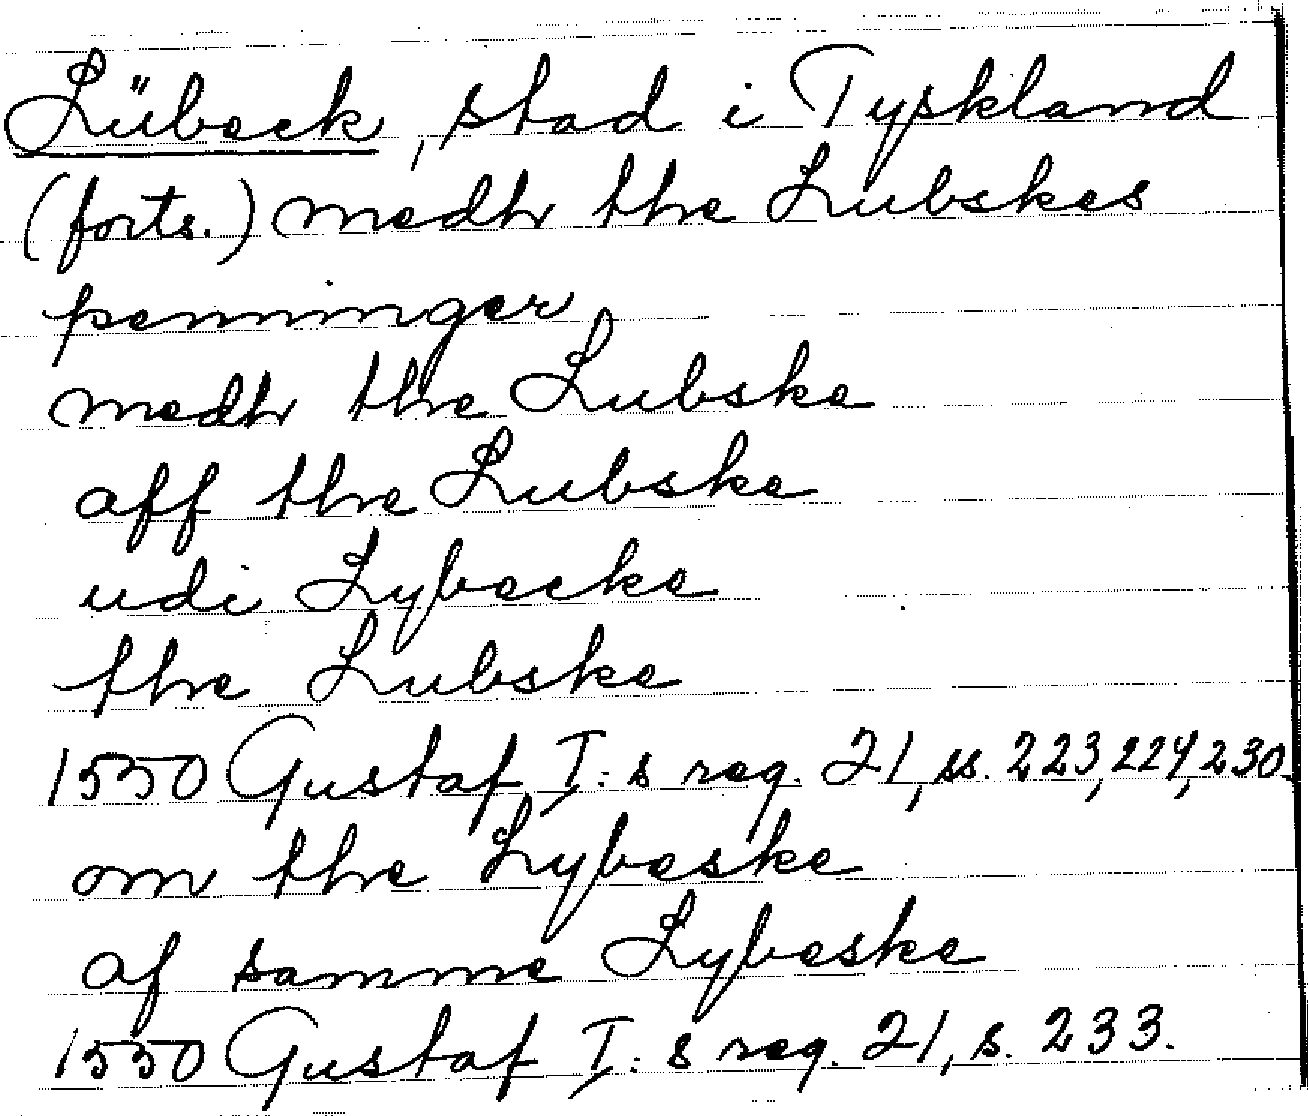 Lübeck, stad i Tyskland
(forts.) medh the Lubskes
penninger
medh the Lubske
aff the Lubske
udi Lybecke
the Lubske
1550 Gustaf I:s reg. 21, ss. 223, 224, 230.
om the Lybeske
af samme Lybeske
1550 Gustaf I:s reg. 21, s. 233.